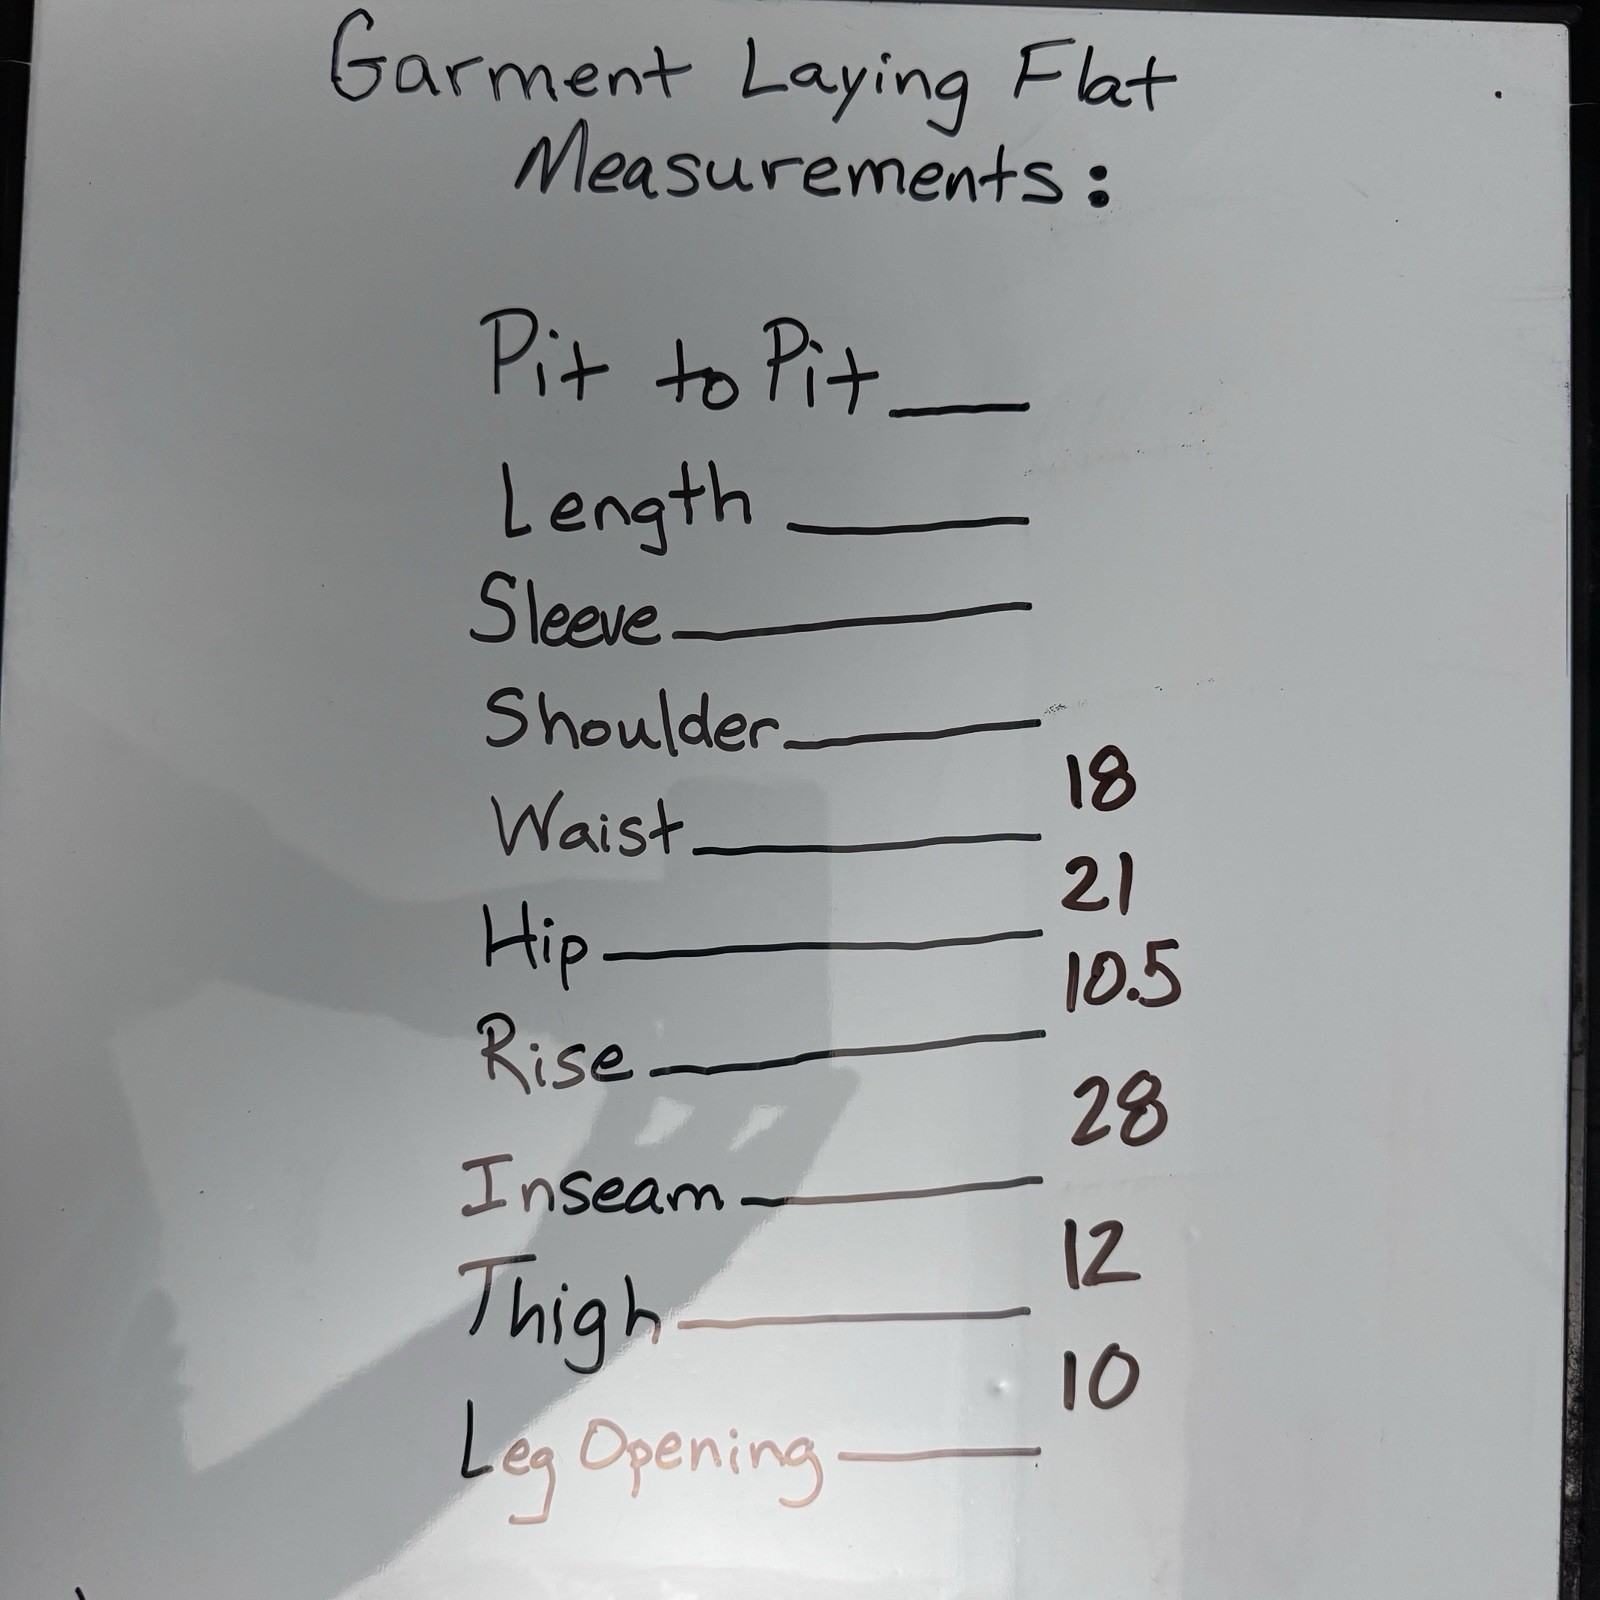 Garment Laying Flat
Measurements:
Pit to Pit ___
Length ___
Sleeve ___
Shoulder ___
Waist ___ 18
Hip ___ 21
Rise ___ 10.5
Inseam ___ 28
Thigh ___ 12
Leg Opening ___ 10